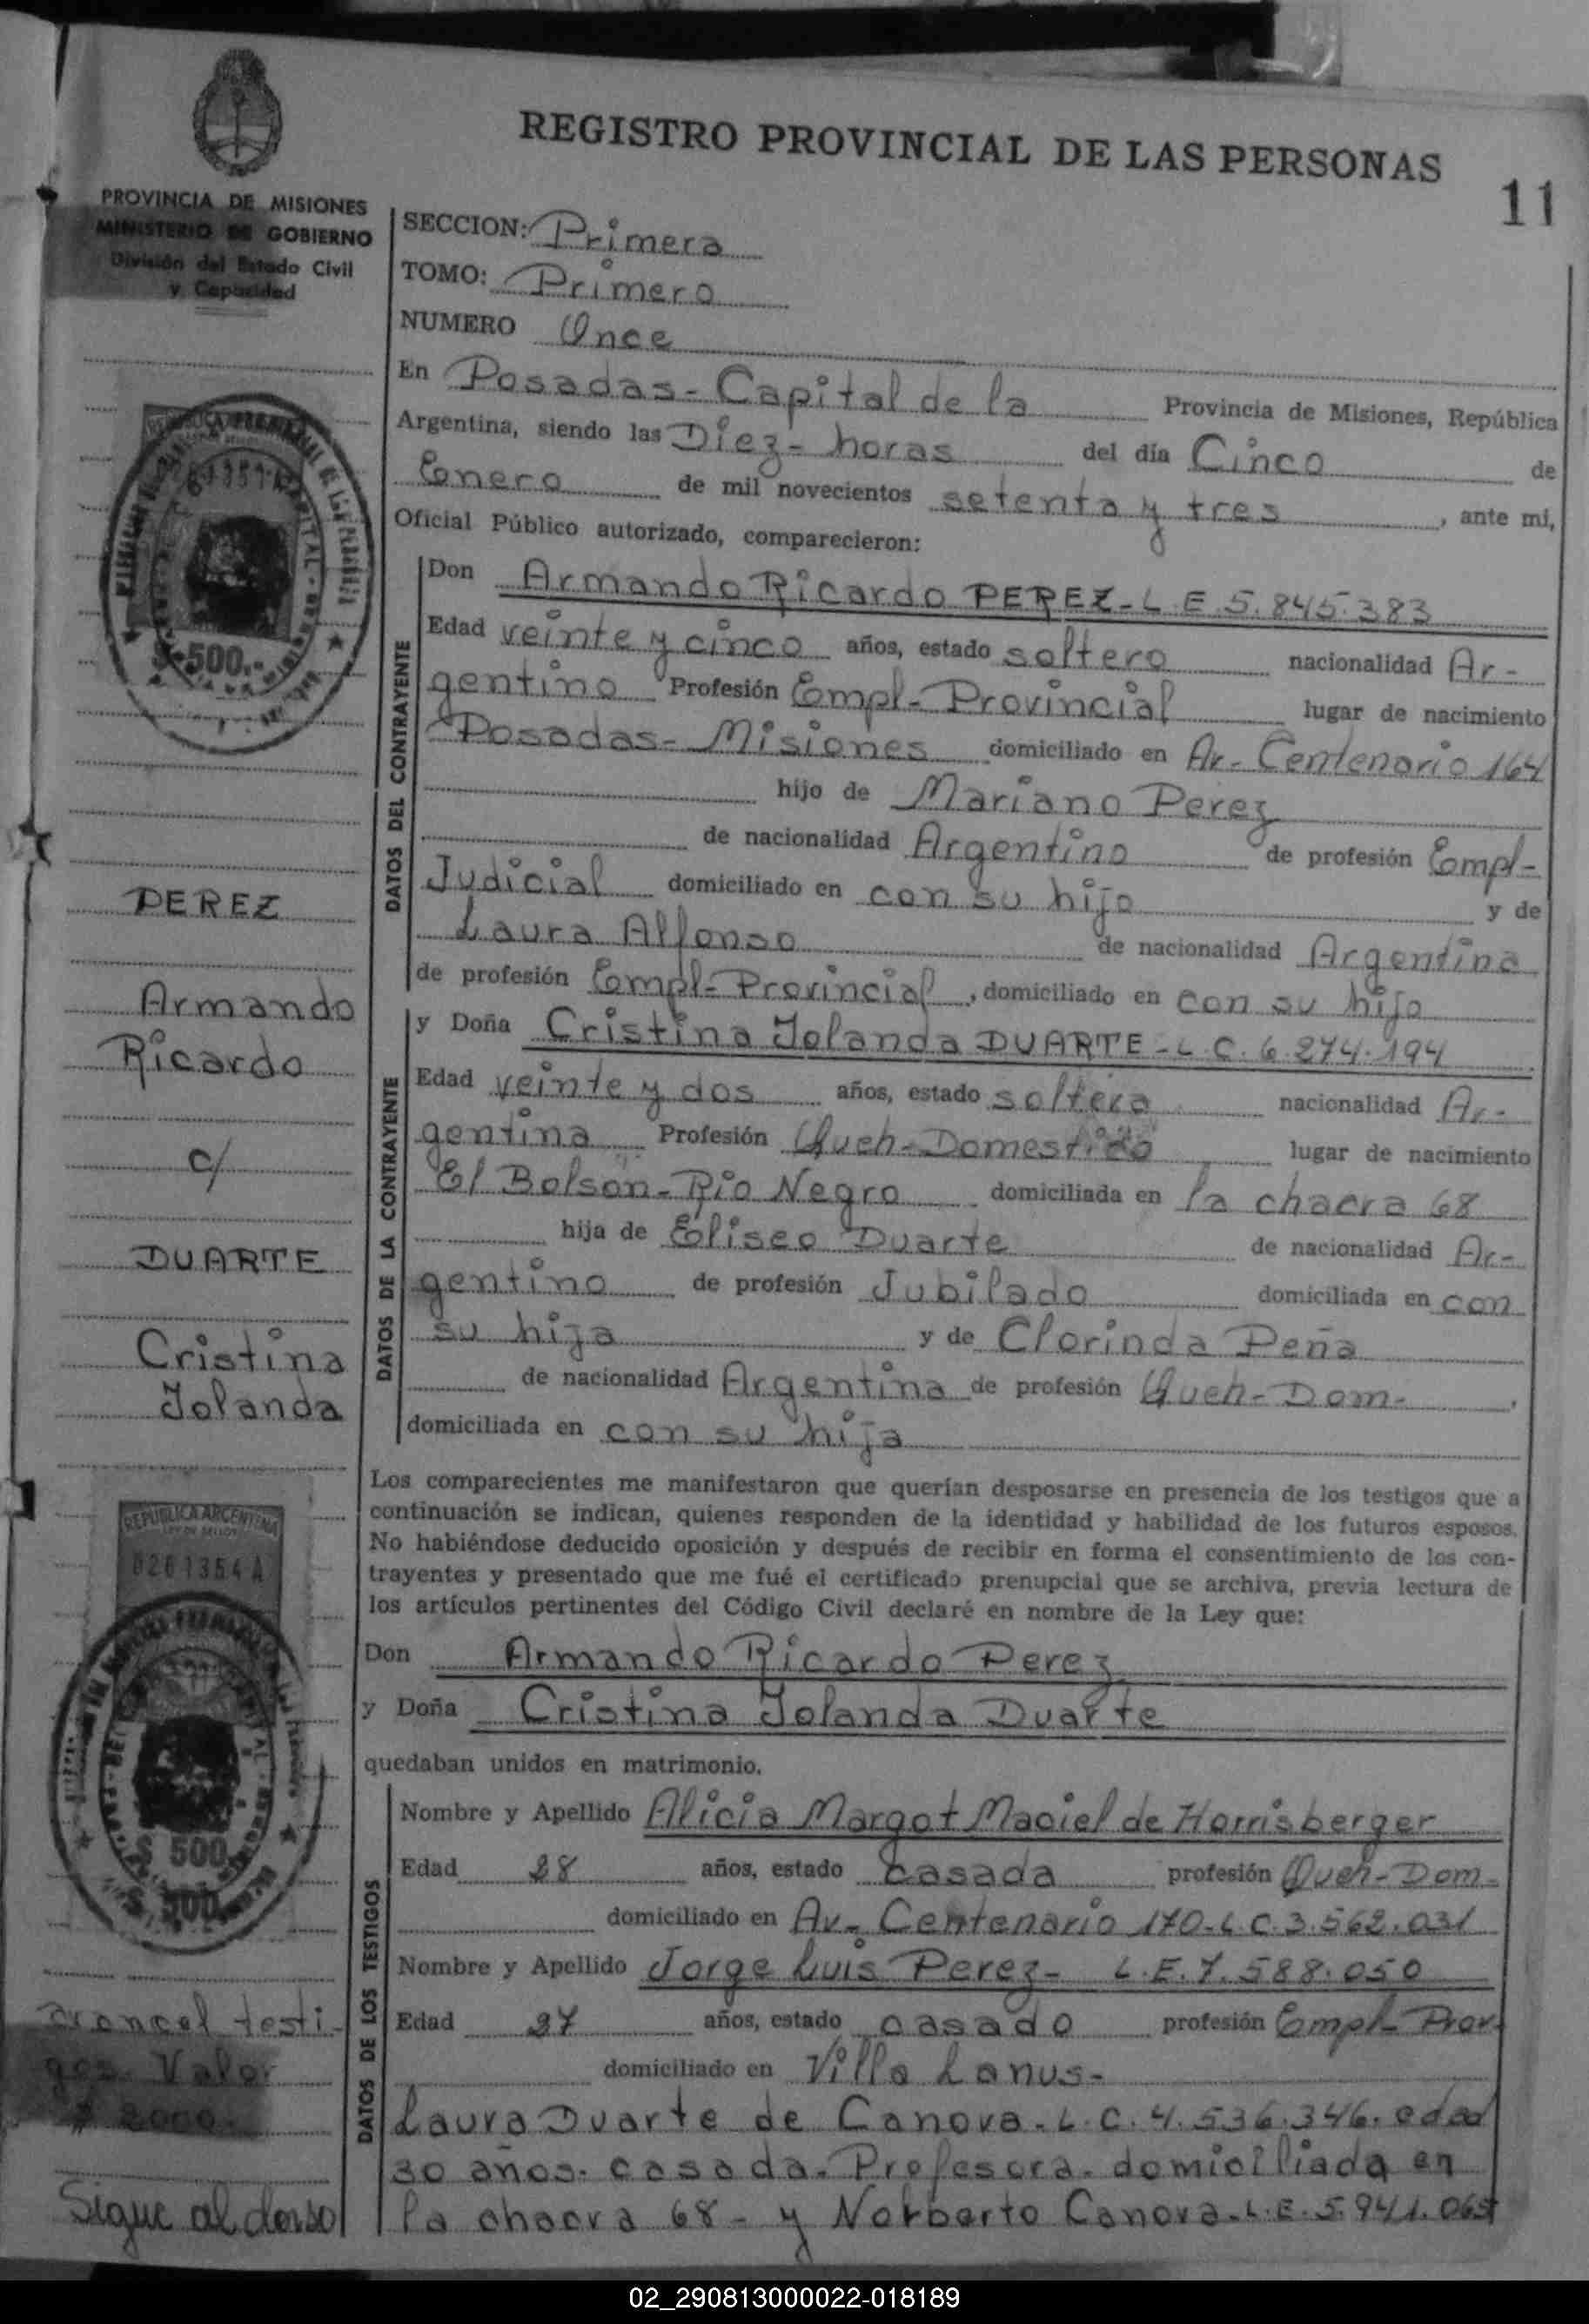 REGISTRO PROVINCIAL DE LAS PERSONAS
11
PROVINCIA DE MISIONES
MINISTERIO DE GOBIERNO
División del Estado Civil
y Capacidad
SECCION: Primera
TOMO: Primero
NUMERO Once
En Posadas - Capital de la Provincia de Misiones, República
Argentina, siendo las Diez - horas del día Cinco de
Enero de mil novecientos setenta y tres, ante mi,
Oficial Público autorizado, comparecieron:
DATOS DEL CONTRAYENTE
Don Armando Ricardo PEREZ - L.E. 5.845.383
Edad veinte y cinco años, estado soltero nacionalidad Ar-
gentino Profesión Empl - Provincial lugar de nacimiento
Posadas - Misiones domiciliado en Av - Centenario 164
hijo de Mariano Perez
de nacionalidad Argentino de profesión Empl -
Judicial domiciliado en con su hijo y de
Laura Alfonso de nacionalidad Argentina
de profesión Empl - Provincial, domiciliado en con su hijo
DATOS DE LA CONTRAYENTE
y Doña Cristina Iolanda DUARTE - L.C. 6.274.194
Edad veinte y dos años, estado soltera nacionalidad Ar-
gentina Profesión Queh - Domestico lugar de nacimiento
El Bolsón - Rio Negro domiciliada en la chacra 68
hija de Eliseo Duarte de nacionalidad Ar-
gentino de profesión Jubilado domiciliada en con
su hija y de Clorinda Peña
de nacionalidad Argentina de profesión Queh - Dom -,
domiciliada en con su hija
Los comparecientes me manifestaron que querían desposarse en presencia de los testigos que a
continuación se indican, quienes responden de la identidad y habilidad de los futuros esposos.
No habiéndose deducido oposición y después de recibir en forma el consentimiento de los con-
trayentes y presentado que me fué el certificado prenupcial que se archiva, previa lectura de
los artículos pertinentes del Código Civil declaré en nombre de la Ley que:
Don Armando Ricardo Perez
y Doña Cristina Iolanda Duarte
quedaban unidos en matrimonio.
DATOS DE LOS TESTIGOS
Nombre y Apellido Alicia Margot Maciel de Horrisberger
Edad 28 años, estado casada profesión Queh - Dom -
domiciliado en Av - Centenario 170 - L.C. 3.562.031
Nombre y Apellido Jorge Luis Perez - L.E. 7.588.050
Edad 27 años, estado casado profesión Empl - Prov -
domiciliado en Villa Lanus -
Laura Duarte de Canova - L.C. 4.536.346. edad
30 años. casada. Profesora. domiciliada en
la chacra 68 - y Norberto Canova - L.E. 5.941.065
PEREZ
Armando
Ricardo
c/
DUARTE
Cristina
Iolanda
REPUBLICA ARGENTINA
0261354 A
$ 500
$ 500
$ 500.-
arancel testi-
gos - Valor
$ 2000.-
Sigue al dorso
02_290813000022-018189